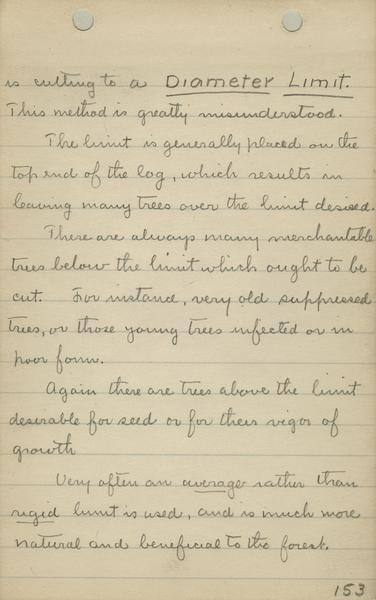 is cutting to a Diameter Limit.
This method is greatly misunderstood.
The limit is generally placed on the
top end of the log, which results in
leaving many trees over the limit desired.
There are always many merchantable
trees below the limit which ought to be
cut. For instance, very old suppressed
trees, or those young trees infected or in
poor form.
Again there are trees above the limit
desirable for seed or for their vigor of
growth
Very often an average rather than
rigid limit is used, and is much more
natural and beneficial to the forest.
153